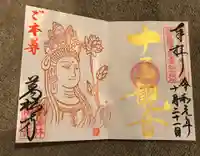 奉拝
令和元年
十月三十一日
十一面観音
ご本尊
萬福寺